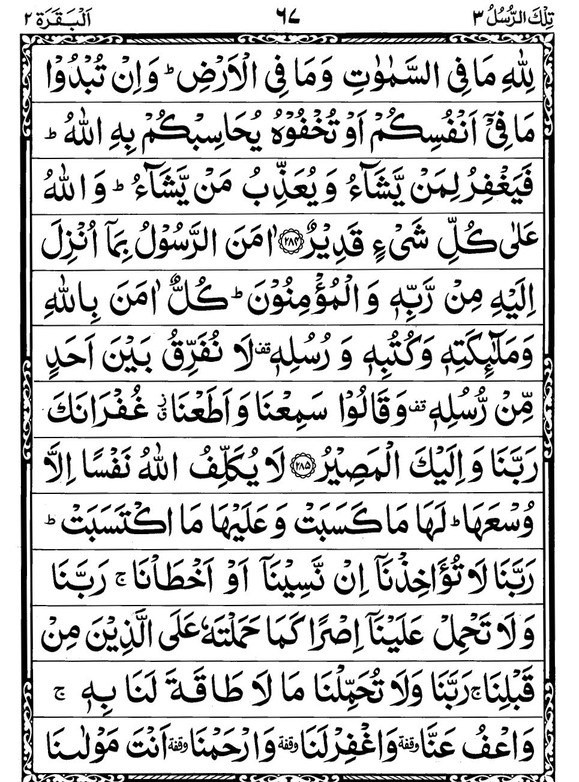 تِلْكَ الرُّسُلُ ٣ ٦٧ اَلْبَقَرَة ٢
لِلّٰهِ مَا فِی السَّمٰوٰتِ وَمَا فِی الْاَرْضِ ؕ وَاِنْ تُبْدُوْا
مَا فِیْۤ اَنْفُسِكُمْ اَوْ تُخْفُوْهُ یُحَاسِبْكُمْ بِهِ اللّٰهُ ؕ
فَیَغْفِرُ لِمَنْ یَّشَآءُ وَیُعَذِّبُ مَنْ یَّشَآءُ ؕ وَاللّٰهُ
عَلٰی كُلِّ شَیْءٍ قَدِیْرٌ ﴿۲۸۴﴾ اٰمَنَ الرَّسُوْلُ بِمَاۤ اُنْزِلَ
اِلَیْهِ مِنْ رَّبِّهٖ وَالْمُؤْمِنُوْنَ ؕ كُلٌّ اٰمَنَ بِاللّٰهِ
وَمَلٰٓئِكَتِهٖ وَكُتُبِهٖ وَرُسُلِهٖ قف لَا نُفَرِّقُ بَیْنَ اَحَدٍ
مِّنْ رُّسُلِهٖ قف وَقَالُوْا سَمِعْنَا وَاَطَعْنَا ز غُفْرَانَكَ
رَبَّنَا وَاِلَیْكَ الْمَصِیْرُ ﴿۲۸۵﴾ لَا یُكَلِّفُ اللّٰهُ نَفْسًا اِلَّا
وُسْعَهَا ؕ لَهَا مَا كَسَبَتْ وَعَلَیْهَا مَا اكْتَسَبَتْ ؕ
رَبَّنَا لَا تُؤَاخِذْنَاۤ اِنْ نَّسِیْنَاۤ اَوْ اَخْطَاْنَا ۚ رَبَّنَا
وَلَا تَحْمِلْ عَلَیْنَاۤ اِصْرًا كَمَا حَمَلْتَهٗ عَلَی الَّذِیْنَ مِنْ
قَبْلِنَا ۚ رَبَّنَا وَلَا تُحَمِّلْنَا مَا لَا طَاقَةَ لَنَا بِهٖ ۚ
وَاعْفُ عَنَّا وقفة وَاغْفِرْ لَنَا وقفة وَارْحَمْنَا وقفة اَنْتَ مَوْلٰىنَا